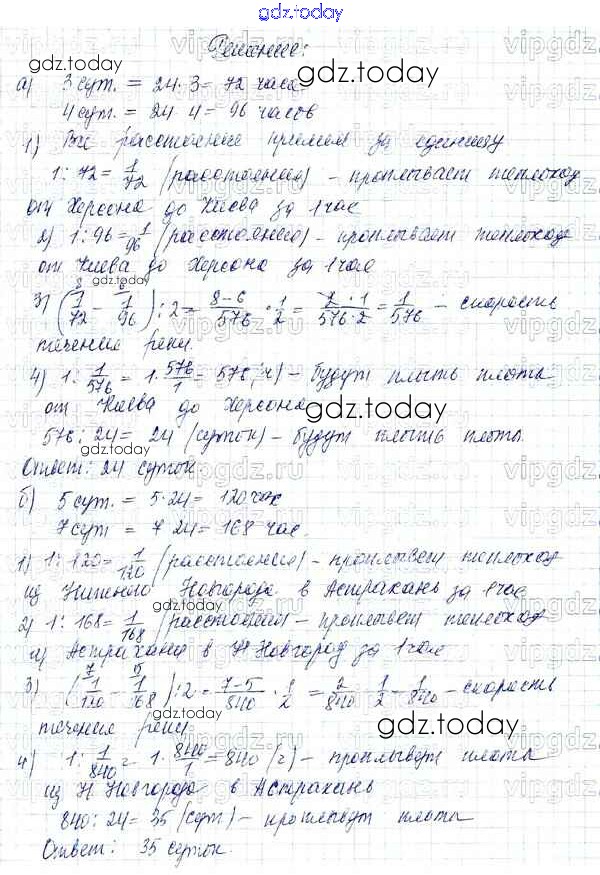 gdz.today
Решение:
а) 3 сут. = 24·3 = 72 часа
4 сут. = 24 4 = 96 часов
1) Всё расстояние примем за единицу
1 : 72 = 1/72 (расстояния) - проплывает теплоход
от Херсона до Киева за 1 час
2) 1 : 96 = 1/96 (расстояния) - проплывает теплоход
от Киева до Херсона за 1 час
3) (1/72 - 1/96) : 2 = (8-6)/576 · 1/2 = (2·1)/(576·2) = 1/576 - скорость
течения реки.
4) 1 : 1/576 = 1 · 576/1 = 576 (ч) - будут плыть плоты
от Киева до Херсона
576 : 24 = 24 (суток) - будут плыть плоты.
Ответ: 24 суток
б) 5 сут. = 5·24 = 120 час
7 сут = 7 24 = 168 час.
1) 1 : 120 = 1/120 (расстояния) - проплывет теплоход
из Нижнего Новгорода в Астрахань за 1 час
2) 1 : 168 = 1/168 (расстояния) - проплывет теплоход
из Астрахани в Н Новгород за 1 час
3) (1/120 - 1/168) : 2 = (7-5)/840 · 1/2 = 2/840 · 1/2 = 1/840 - скорость
течения реки
4) 1 : 1/840 = 1 · 840/1 = 840 (ч) - проплывут плоты
из Н Новгорода в Астрахань
840 : 24 = 35 (сут) - проплывут плоты
Ответ: 35 суток.